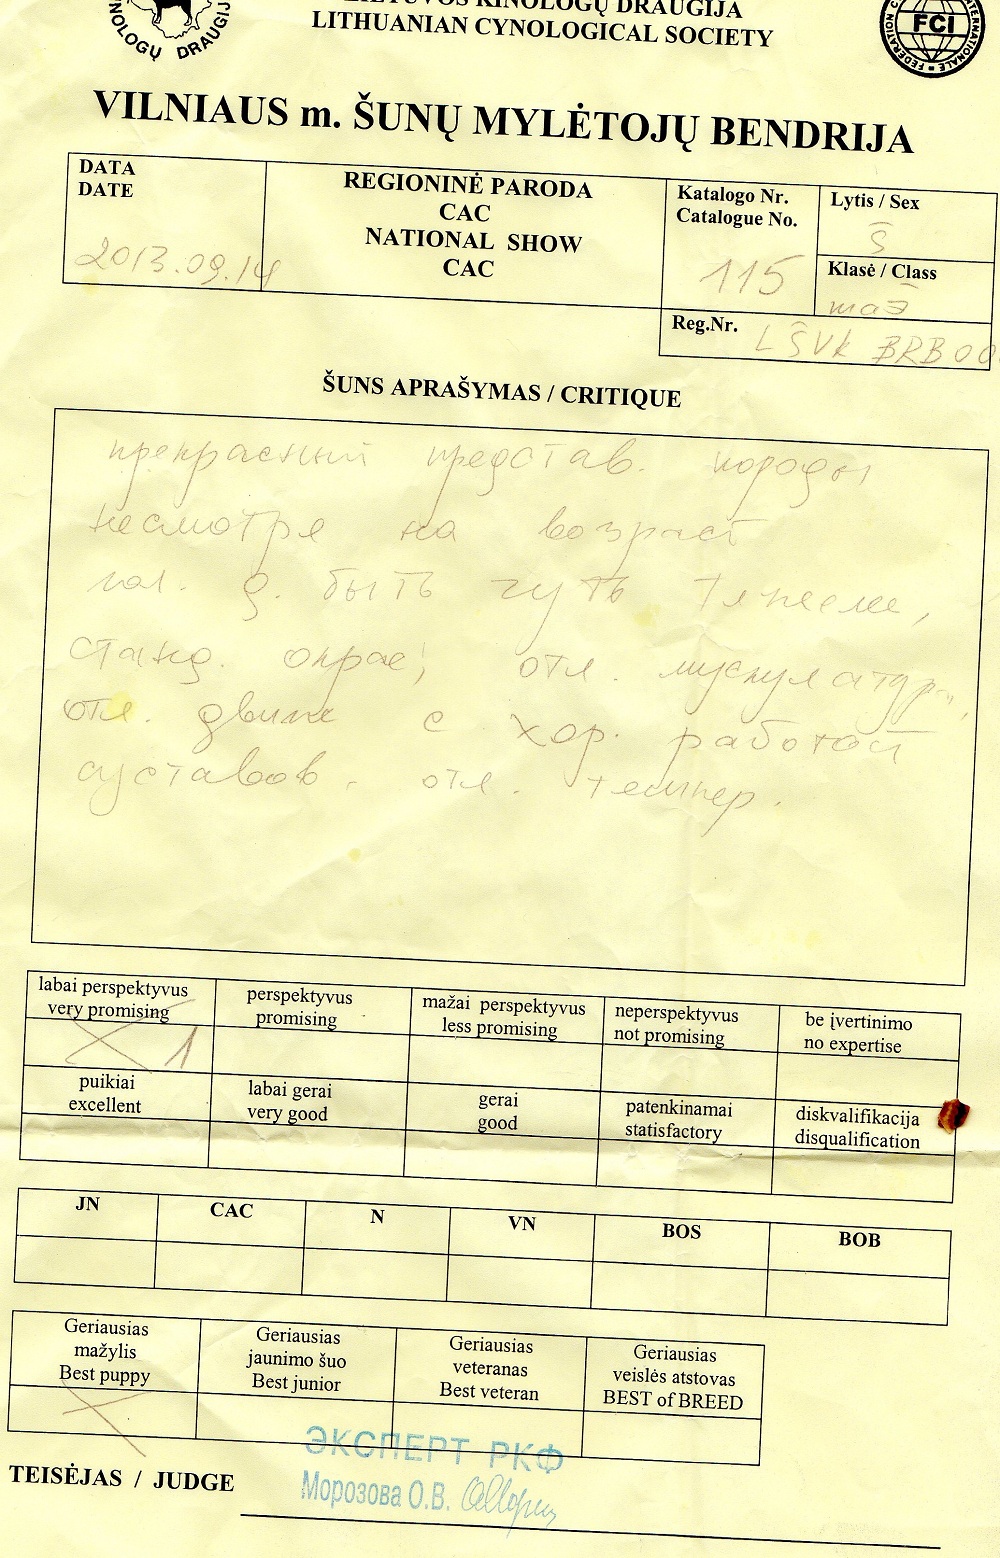 LIETUVOS KINOLOGŲ DRAUGIJA
LITHUANIAN CYNOLOGICAL SOCIETY
DRAUGIJ
FCI
VILNIAUS m. ŠUNŲ MYLĖTOJŲ BENDRIJA
DATA
DATE
2013.09.14
REGIONINĖ PARODA
CAC
NATIONAL SHOW
CAC
Katalogo Nr.
Catalogue No.
115
Lytis / Sex
Š
Klasė / Class
maž
Reg.Nr. LŠVK BRB 00
ŠUNS APRAŠYMAS / CRITIQUE
прекрасный представ. породы
несмотря на возраст
д. быть чуть тяжеле,
станд. окрас, отл. мускулатура,
отл. движ с хор. работой
суставов. отл. темпер.
labai perspektyvus
very promising
1
perspektyvus
promising
mažai perspektyvus
less promising
neperspektyvus
not promising
be įvertinimo
no expertise
puikiai
excellent
labai gerai
very good
gerai
good
patenkinamai
statisfactory
diskvalifikacija
disqualification
JN CAC N VN BOS BOB
Geriausias
mažylis
Best puppy
Geriausias
jaunimo šuo
Best junior
Geriausias
veteranas
Best veteran
Geriausias
veislės atstovas
BEST of BREED
ЭКСПЕРТ РКФ
Морозова О.В.
TEISĖJAS / JUDGE